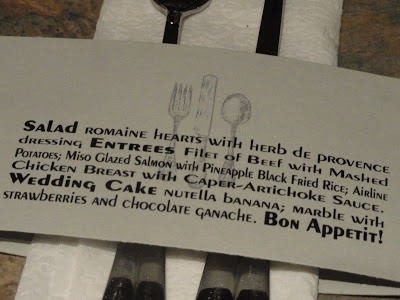 Salad romaine hearts with herb de provence
dressing Entrees Filet of Beef with Mashed
Potatoes; Miso Glazed Salmon with Pineapple Black Fried Rice; Airline
Chicken Breast with Caper-Artichoke Sauce.
Wedding Cake nutella banana; marble with
strawberries and chocolate ganache. Bon Appetit!